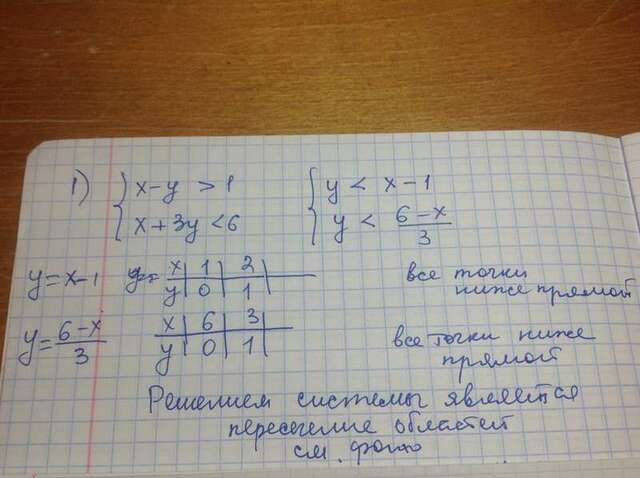 1) { x-y > 1 { y < x-1
x+3y < 6 y < (6-x)/3
y = x-1 y= x | 1 | 2 | все точки
y | 0 | 1 | ниже прямой
y = (6-x)/3 x | 6 | 3 | все точки ниже
y | 0 | 1 | прямой
Решением системы является
пересечение областей
см. фото